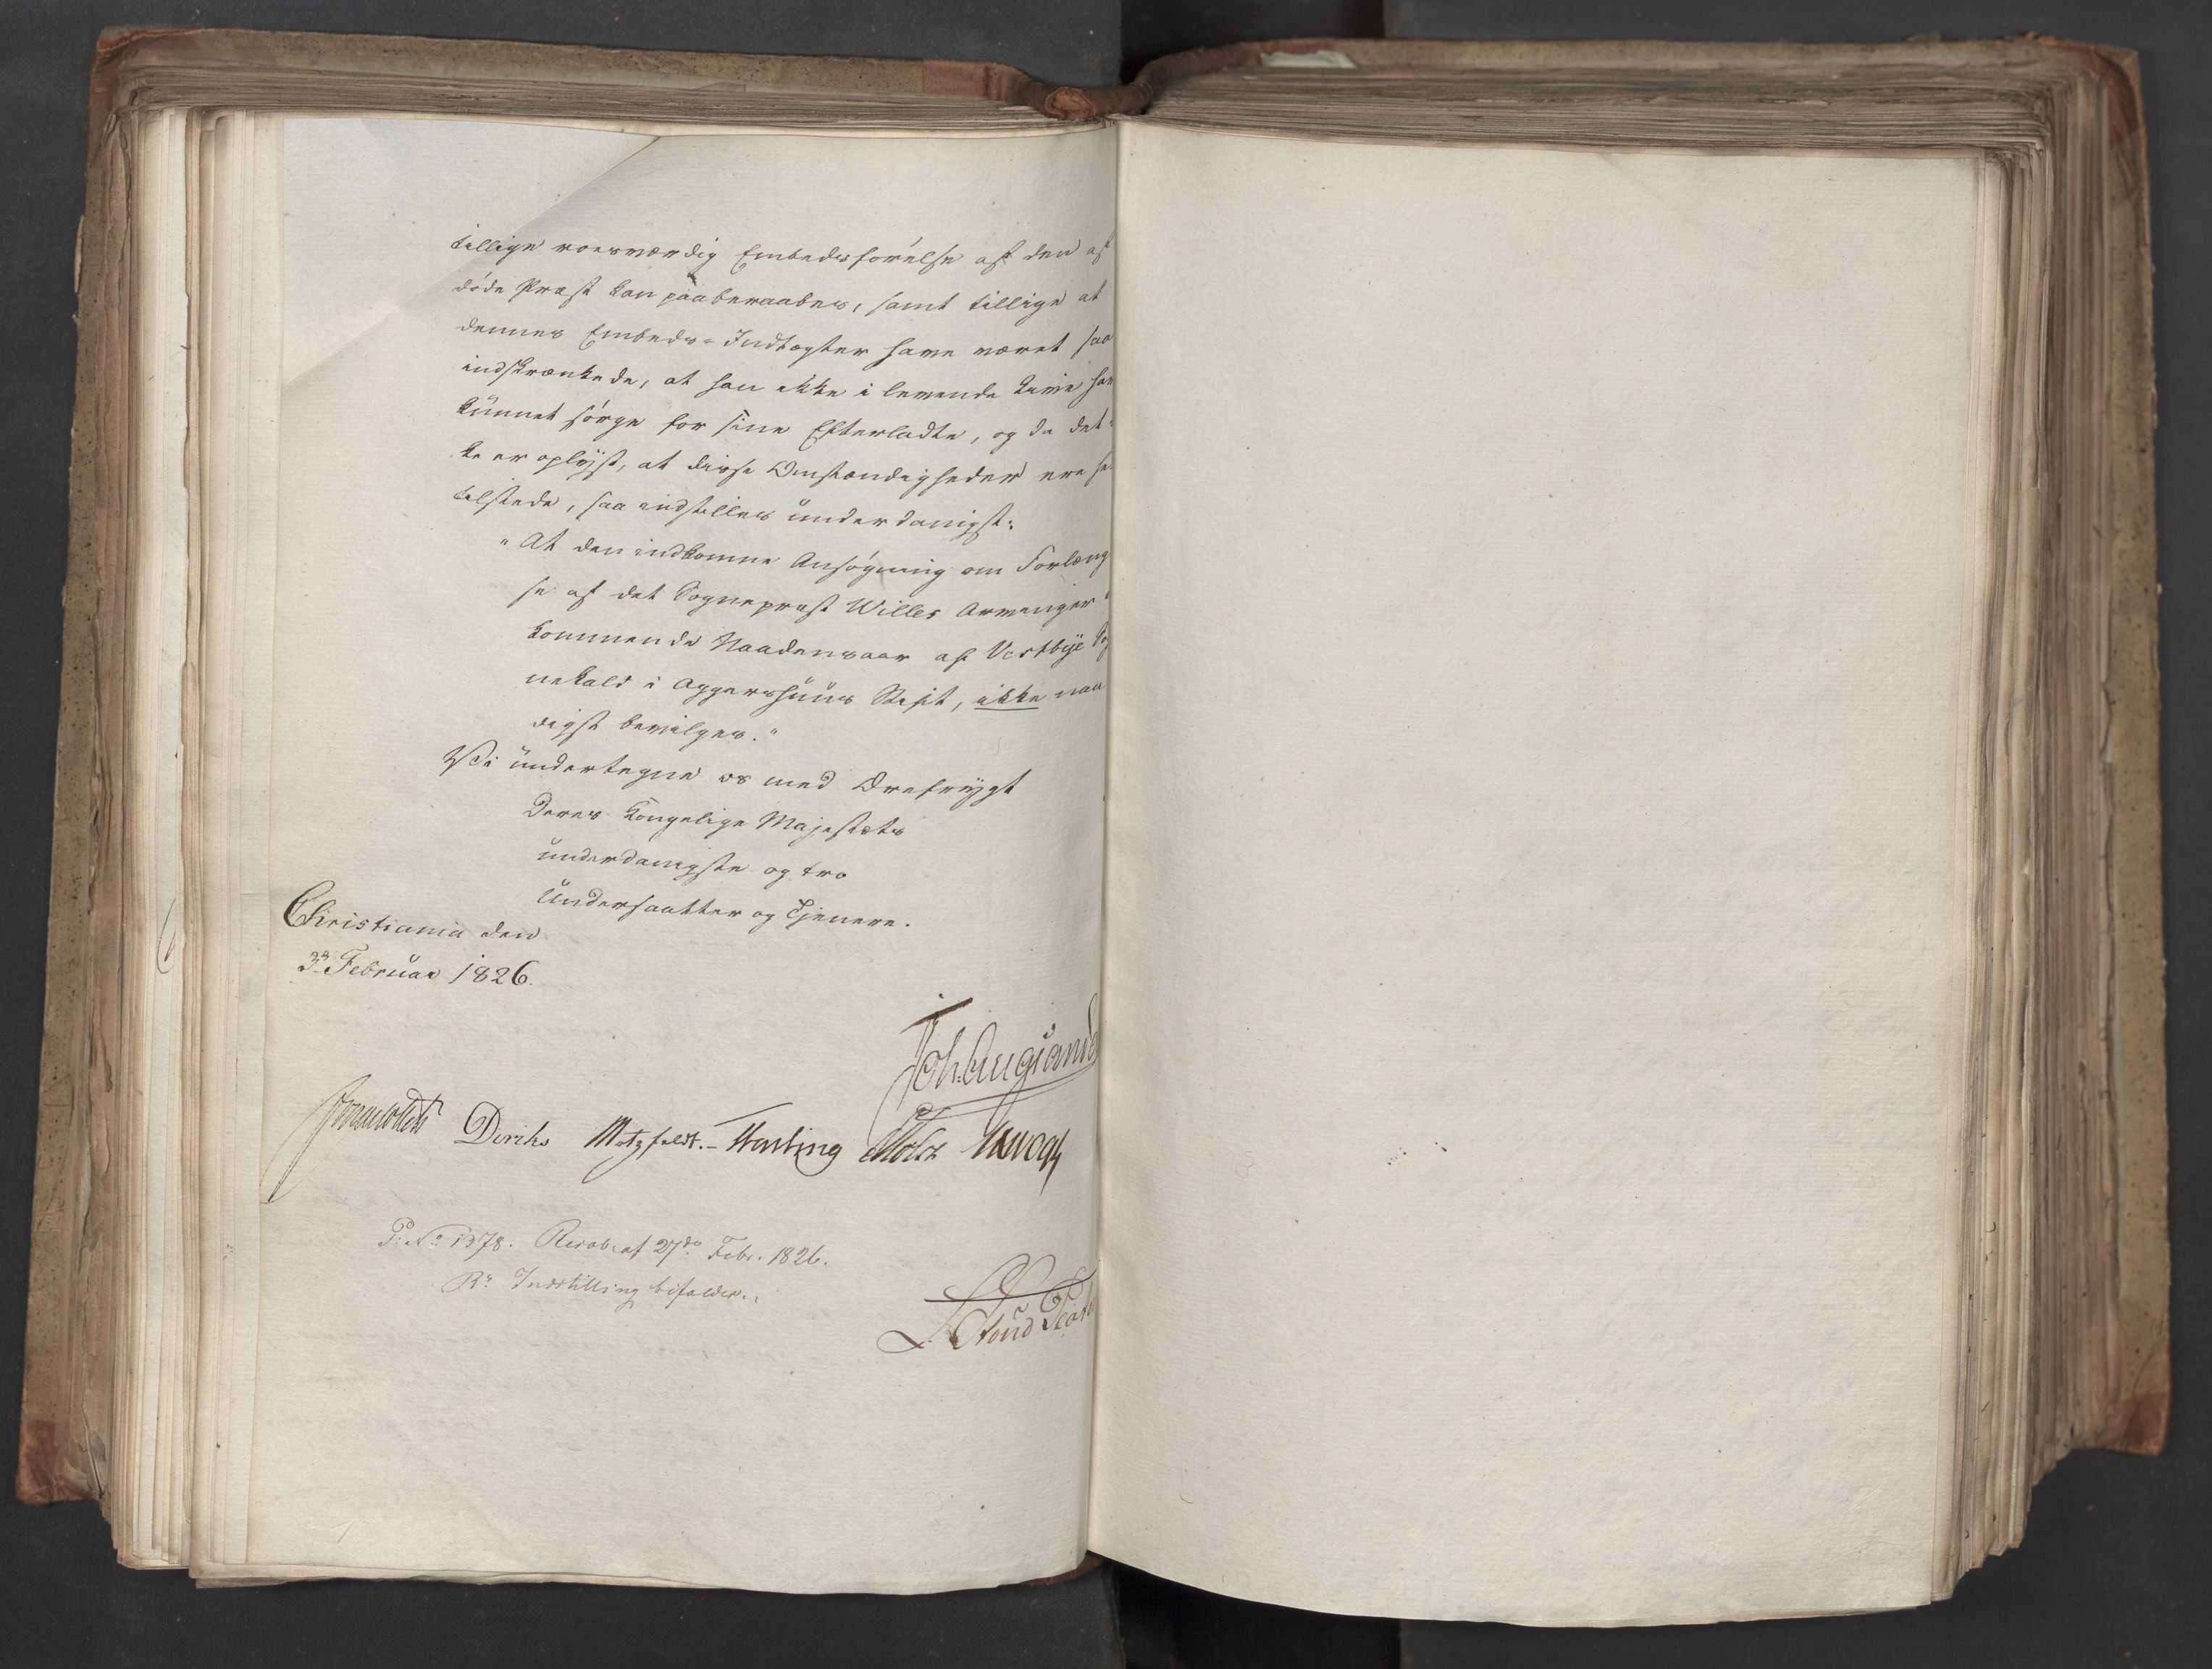 tillige roesværdig Embedsførelse af den af
døde Præst kan paaberaabes, samt tillige at
dennes Embeds-Indtægter have været saa
indskrænkede, at han ikke i levende Live har
kunnet sørge for sine Efterladte, og da det
ke er oplyst, at disse Omstændigheder ere he
tilstede, saa indstilles underdanigst:
"At den indkomne Ansøgning om Forlæng
se af det Sognepræst Willes Arvinger
kommende Naadensaar af Vestbye Sog
nekald i Aggershuus Stift, ikke naa
digst bevilges."
Vi undertegne os med Ærefrygt
Deres Kongelige Majestæts
underdanigste og tro
Undersaatter og Tjenere.
Christiania den
3d Februar 1826.
Joh. Aug. Sande
Diriks Motzfeldt. Fasting Holst
P: No 1378. Resol: af 27de Febr. 1826.
Rs Indstilling bifaldes.